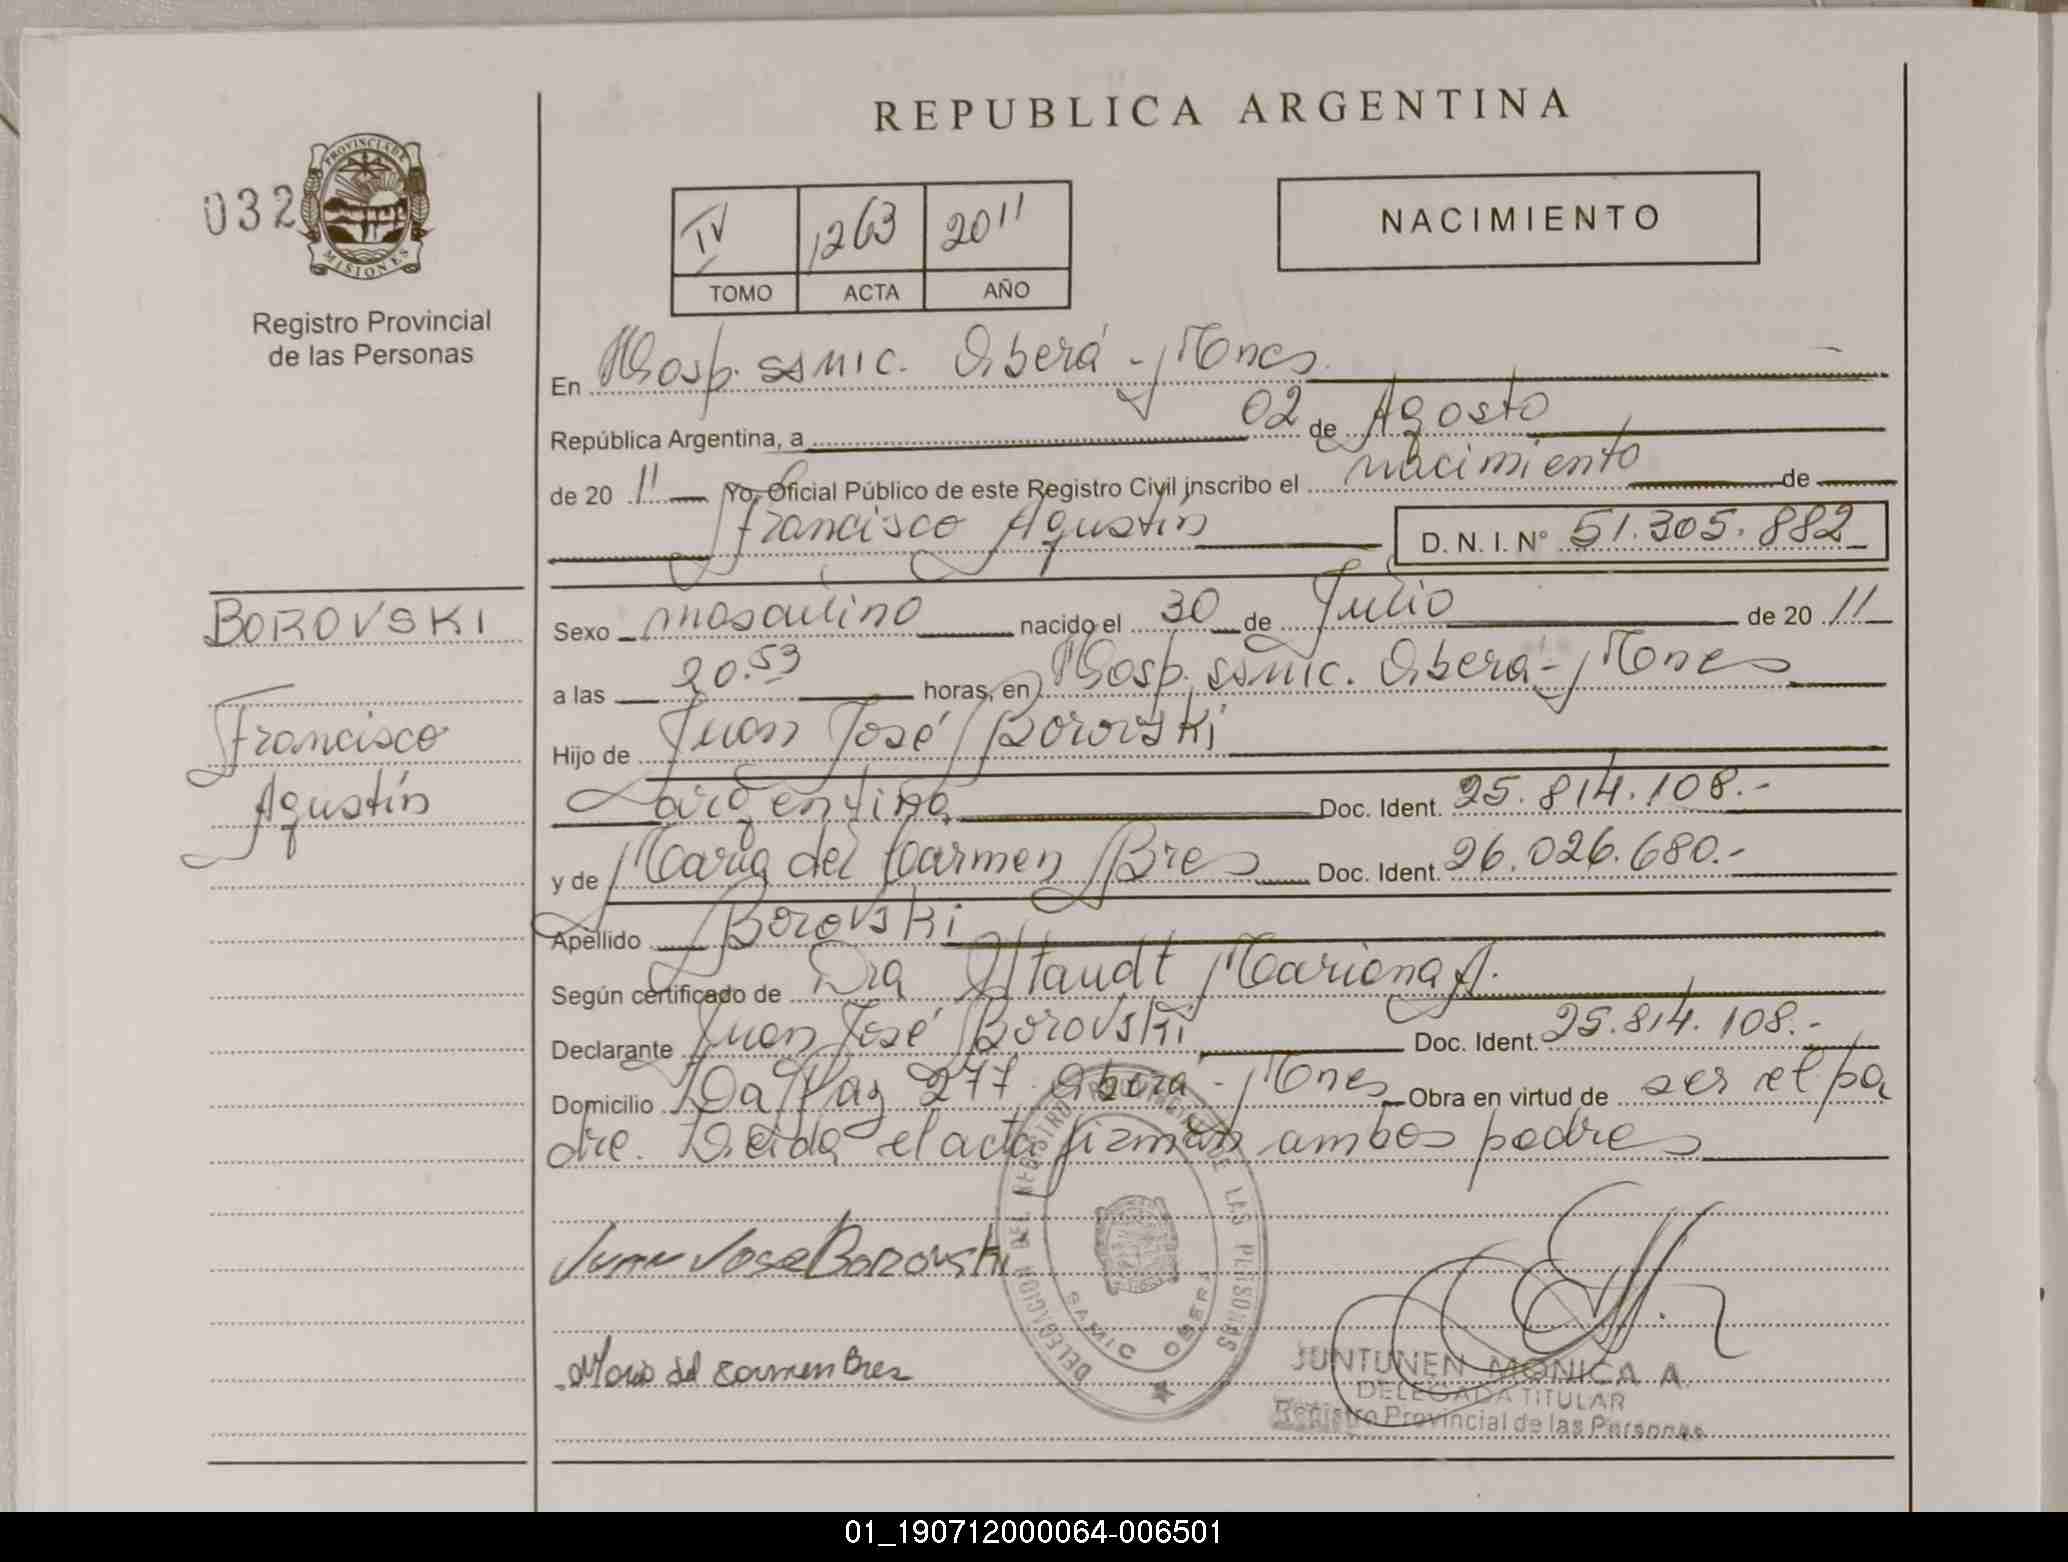 REPUBLICA ARGENTINA
032
PROVINCIA DE
MISIONES
Registro Provincial
de las Personas
IV 1263 2011
TOMO ACTA AÑO
NACIMIENTO
En Hosp. SSMIC. Oberá - Mnes
República Argentina, a 02 de Agosto
de 20 11 Yo, Oficial Público de este Registro Civil inscribo el nacimiento de
Francisco Agustín D. N. I. Nº 51.305.882
BOROVSKI
Francisco
Agustín
Sexo masculino nacido el 30 de Julio de 20 11
a las 20.53 horas, en Hosp. SSMIC. Oberá - Mones
Hijo de Juan José Borovski
argentina Doc. Ident. 25.814.108.-
y de María del Carmen Bres Doc. Ident. 26.026.680.-
Apellido Borovski
Según certificado de Dra Staudt Mariana A.
Declarante Juan José Borovski Doc. Ident. 25.814.108.-
Domicilio La Paz 277 Oberá - Mnes Obra en virtud de ser el pa
dre. Leida el acta firman ambos padres
Juan Jose Borovski
Maria del Carmen Bres
DELEGACION DEL REGISTRO PROVINCIAL DE LAS PERSONAS
SAMIC OBERA
JUNTUNEN MONICA A.
DELEGADA TITULAR
Registro Provincial de las Personas
01_190712000064-006501